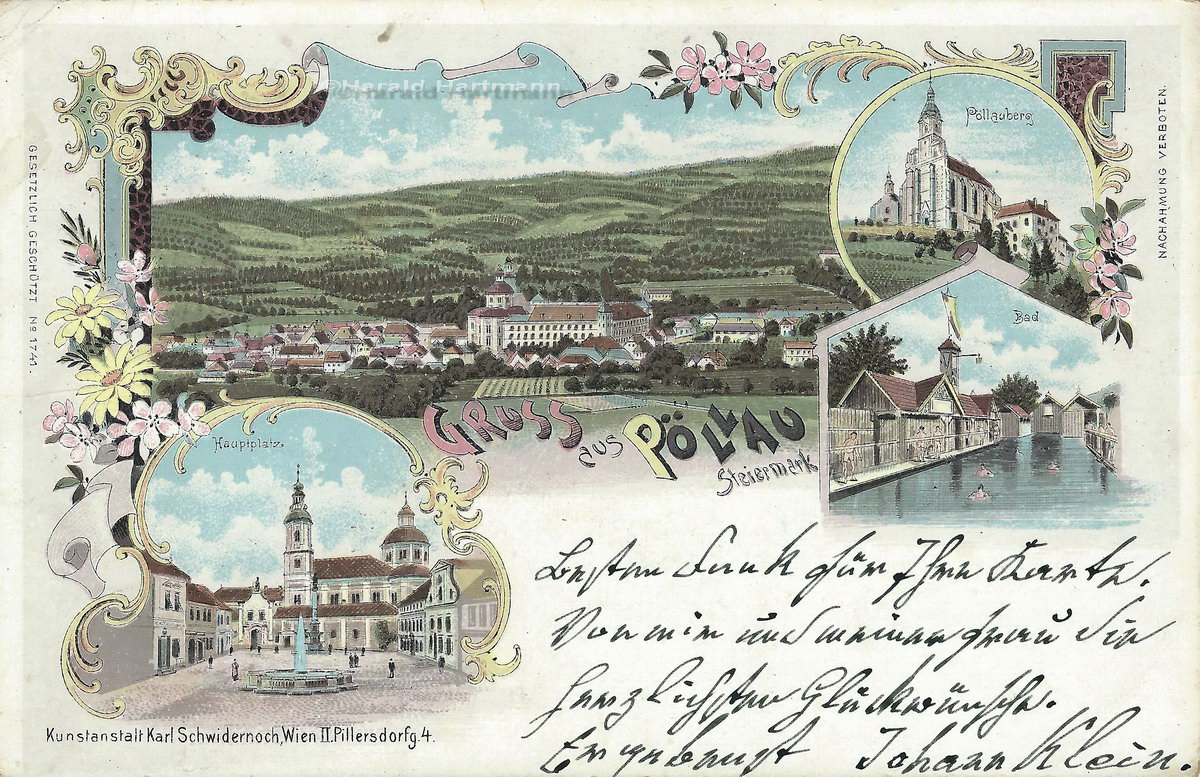 ©Harald Hartmann
Pöllauberg
GESETZLICH GESCHÜTZT Nº 1741.
NACHAHMUNG VERBOTEN.
Bad
GRUSS aus PÖLLAU
Steiermark
Hauptplatz
Besten Dank für Ihre Karte.
Von mir und meiner Frau die
herzlichsten Glückwünsche.
Ergebenst Johann Klein.
Kunstanstalt Karl Schwidernoch, Wien II. Pillersdorfg. 4.